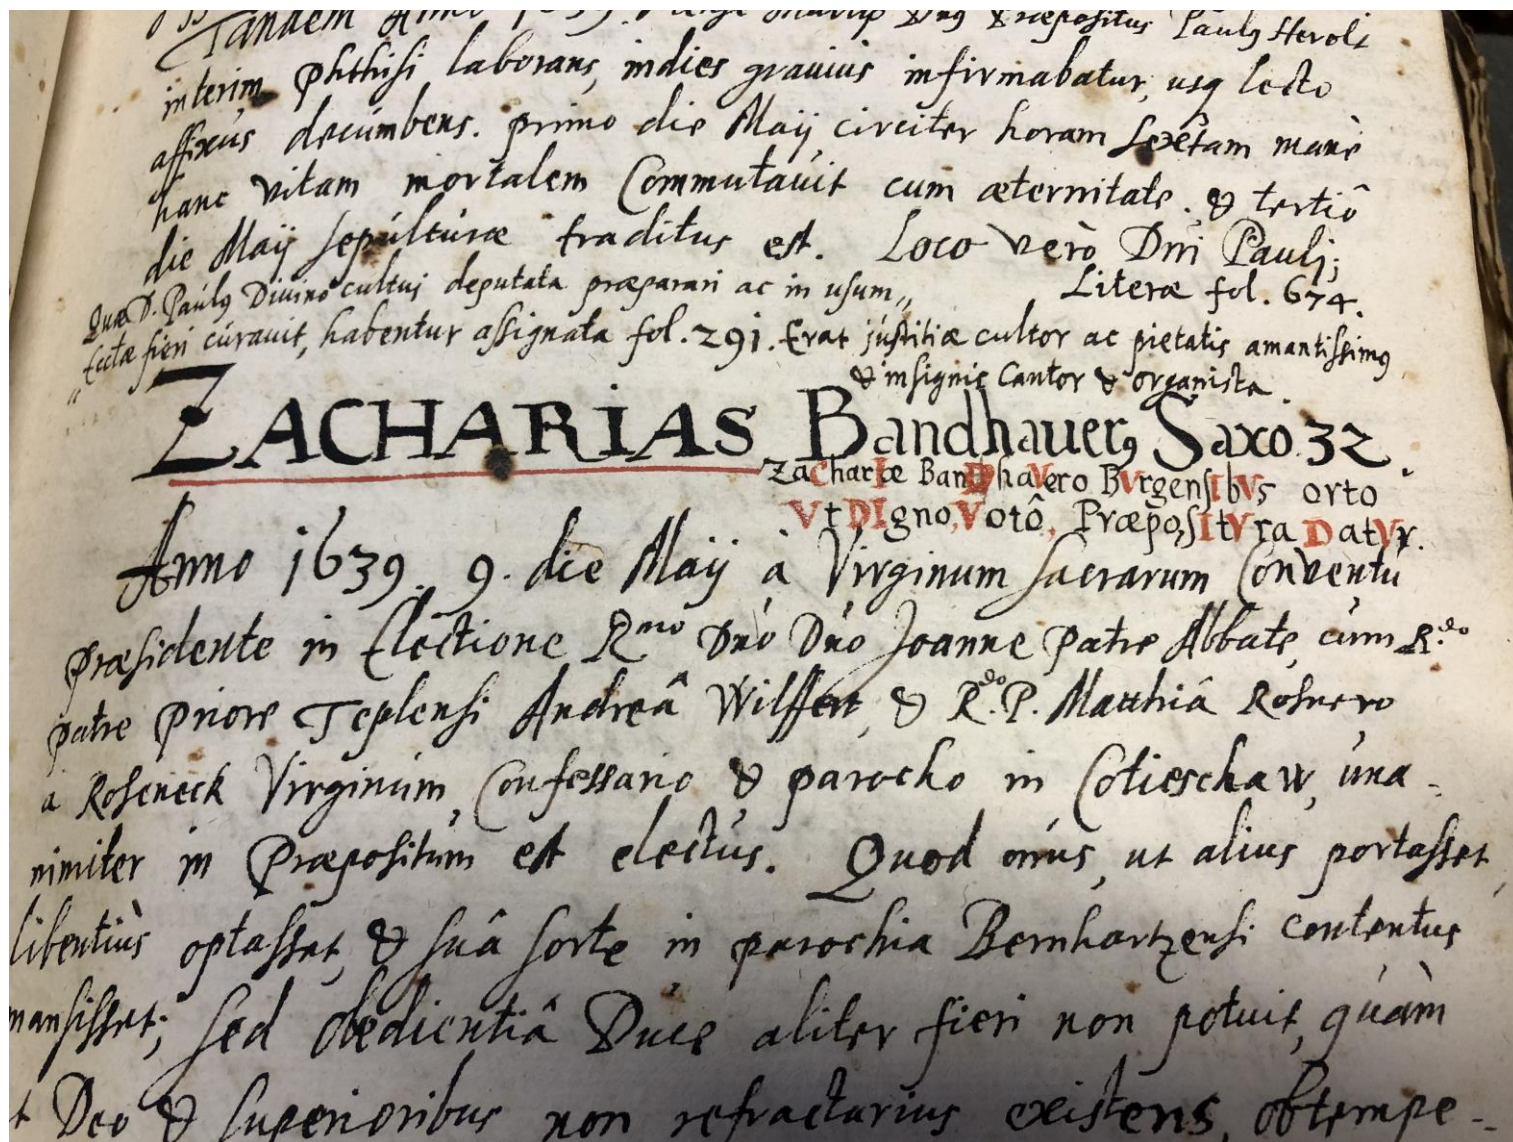 Tandem Anno 1639. Mense Martio Dng Præpositus Paulg Herolt
interim phthisi laborans, indies grauius infirmabatur, usq lecto
affixus decumbens. primo die Maij circiter horam sextam manè
hanc vitam mortalem Commutauit cum æternitate. & tertiô
die Maij sepulturæ traditus est. Loco verò Dni Pauli;
Quæ D. Paulg Divino cultui deputata præparari ac in usum„ Literæ fol. 674.
„Ectæ fieri curauit, habentur assignata fol. 291. Erat justitiæ cultor ac pietatis amantissimg
& insignis Cantor & organista.
ZACHARIAS Bandhauerg Saxo. 32.
ZaCharIæ BanDhaVero BVrgensIbVs orto
Vt DIgno, Votô, PræposItVra DatVr.
Anno 1639. 9. die Maij à Virginum sacrarum Conventu
præsidente in Electione Rmo Dno Dno Joanne Patre Abbate, cum R.do
patre Priore Teplensi Andreâ Wilffert, & R.do P. Matthiâ Rosnero
à Roseneck Virginum Confessario & parocho in Cotieschaw, una-
nimiter in Præpositum est electus. Quod onus, ut alius portasset,
libentiùs optasset, & suâ sorte in parochia Bernhartzensi contentus
mansisset; sed obedientiâ Duce aliter fieri non potuit, quàm
t Deo & superioribus non refractarius existens, obtempe-